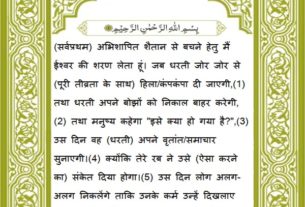 بِسْمِ اللَّهِ الرَّحْمَٰنِ الرَّحِيمِ
(सर्वप्रथम) अभिशापित शैतान से बचने हेतु मैं
ईश्वर की शरण लेता हूं। जब धरती जोर जोर से
(पूरी तीव्रता के साथ) हिला/कंपकंपा दी जाएगी,(1)
तथा धरती अपने बोझों को निकाल बाहर करेगी,
(2) तथा मनुष्य कहेगा "इसे क्या हो गया है?",(3)
उस दिन वह (धरती) अपने वृतांत/समाचार
सुनाएगी।(4) क्योंकि तेरे रब ने उसे (ऐसा करने
का) संकेत दिया होगा।(5) उस दिन लोग अलग-
अलग निकलेंगे ताकि उनके कर्म उन्हें दिखलाए